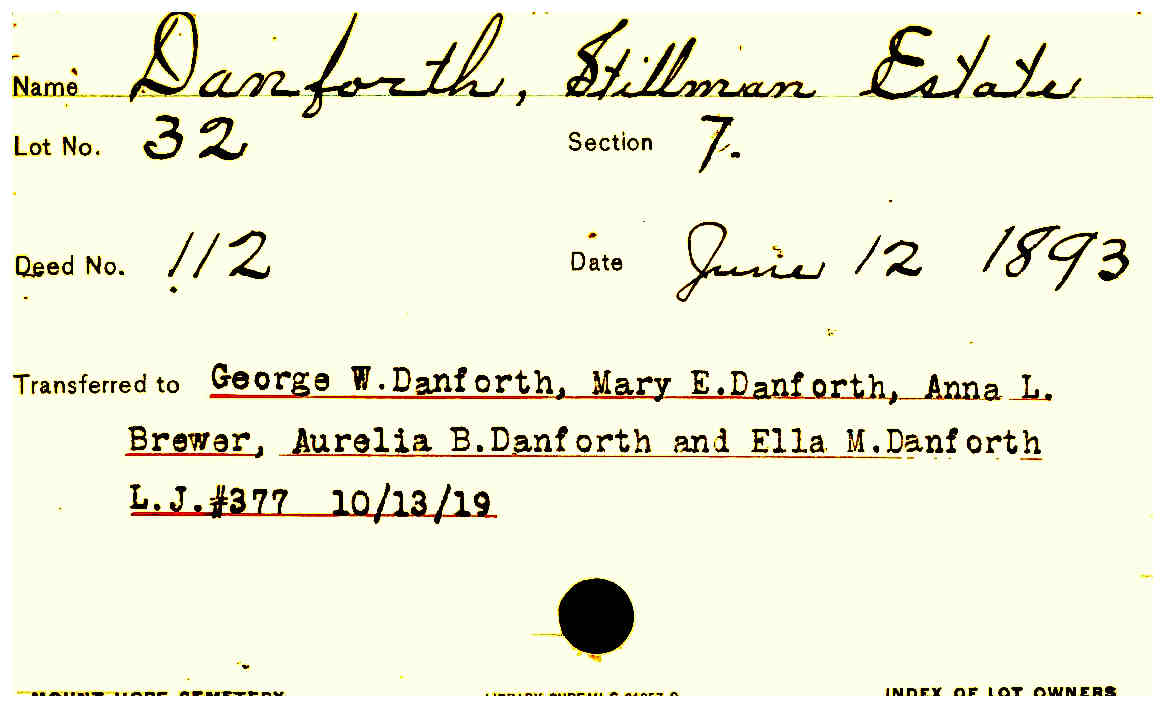 Name Danforth, Stillman Estate
Lot No. 32 Section 7.
Deed No. 112 Date June 12 1893
Transferred to George W.Danforth, Mary E.Danforth, Anna L.
Brewer, Aurelia B.Danforth and Ella M.Danforth
L.J.#377 10/13/19
MOUNT HOPE CEMETERY LIBRARY BUREAU INDEX OF LOT OWNERS